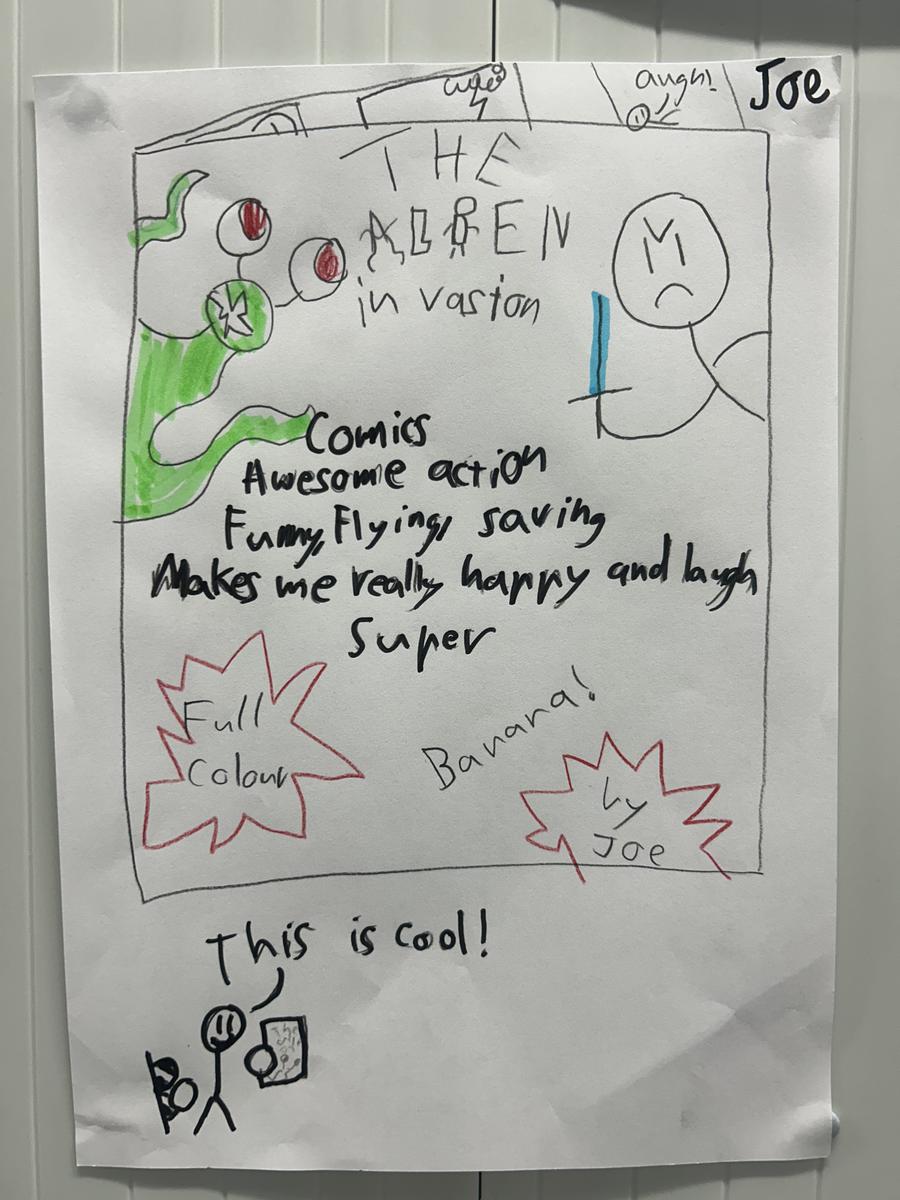 Joe
augh!
THE
ALIEN
invasion
Comics
Awesome action
Funny, Flying, saving
Makes me really happy and laugh
Super
Full
Colour
Banana!
by
Joe
This is cool!